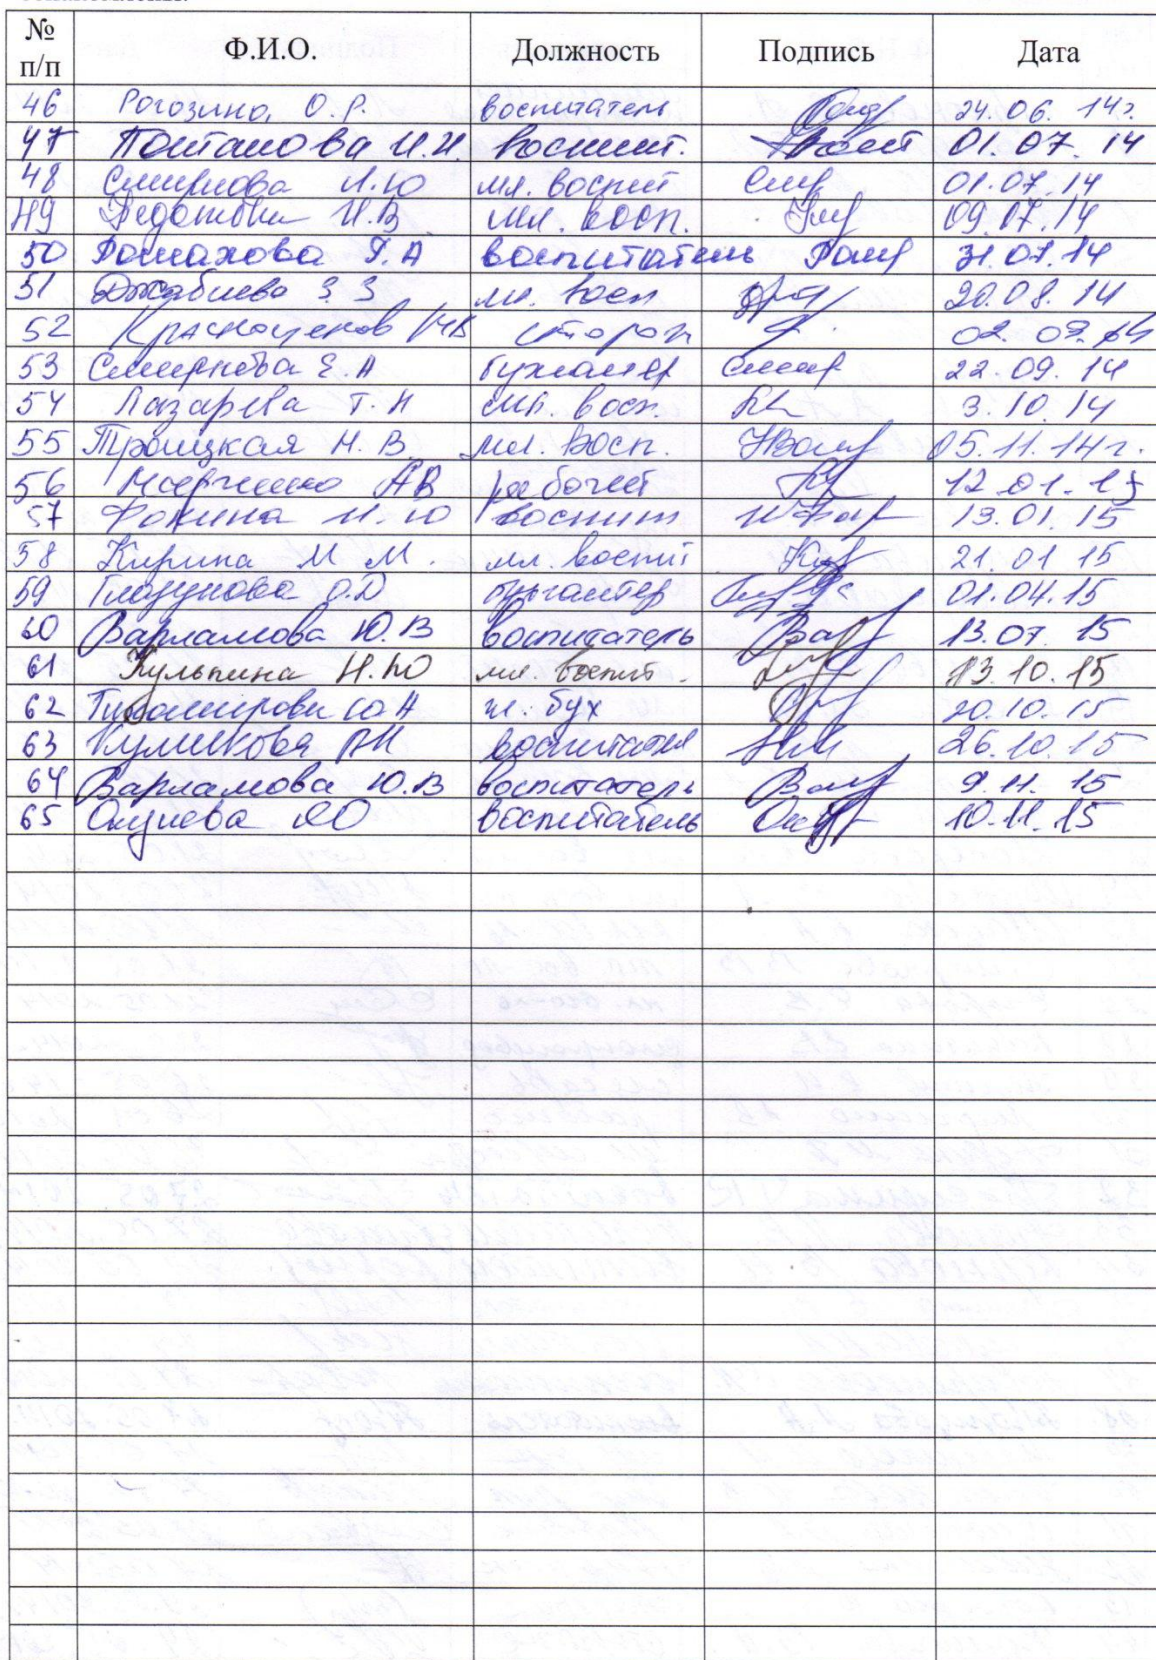 № п/п Ф.И.О. Должность Подпись Дата
46 Рогозина О.Р. воспитатель 24.06.14г.
47 И.И. воспит. 01.07.14
48 Смирнова И.Ю мл. воспит Смир 01.07.14
49 Федотова Н.В мл. восп. 09.07.14
50 Ромахова Г.А воспитатель Ромf 31.07.14
51 Джабиева З З мл. восп 20.08.14
52 сторож 02.09.14
53 Смирнова Е.А бухгалтер Смир 22.09.14
54 Лазарева Т.Н мл. восп. 3.10.14
55 Троицкая Н.В. мл. восп. 05.11.14г.
56 АВ рабочий 12.01.15
57 Фокина И.Ю воспит 13.01.15
58 Кирина М М. мл. воспит 21.01 15
59 Глазунова О.D бухгалтер 01.04.15
60 Варламова Ю.В воспитатель 13.07 15
61 Кульпина Н.Ю мл. воспит. 13.10.15
62 Тихомирова Ю А гл. бух 20.10.15
63 Куликова воспитатель 26.10.15
64 Варламова Ю.В воспитатель 9.11.15
65 воспитатель 10.11.15